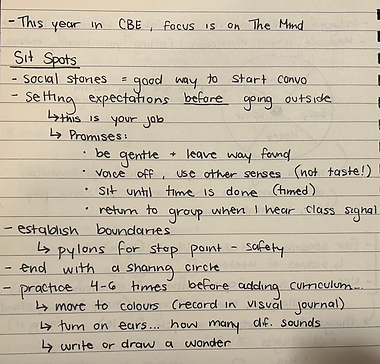 - This year in CBE, focus is on The Mind
Sit Spots
- social stories = good way to start convo
- Setting expectations before going outside
↳ this is your job
↳ Promises:
· be gentle + leave way found
· voice off, use other senses (not taste!)
· Sit until time is done (timed)
· return to group when I hear class signal
- establish boundaries
↳ pylons for stop point - safety
- end with a sharing circle
- practice 4-6 times before adding curriculum...
↳ move to colours (record in visual journal)
↳ turn on ears... how many df. sounds
↳ write or draw a wonder